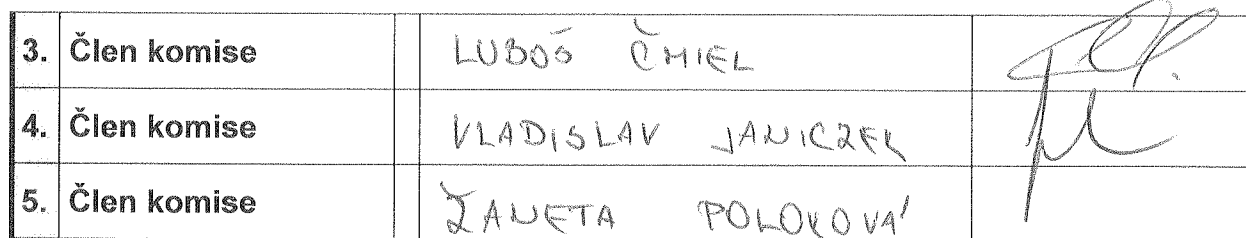 3. Člen komise LUBOŠ ČMIEL
4. Člen komise VLADISLAV JANICZEK
5. Člen komise ŽANETA POLOKOVÁ